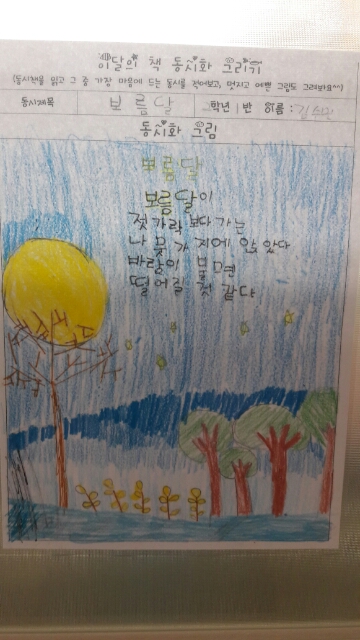 이달의 책 동시화 그리기
(동시집을 읽고 그 중 가장 마음에 드는 동시를 적어보고, 멋지고 예쁜 그림도 그려봐요^^)
동시제목 보름달 학년 반 이름:
동시화 그림
보름달
보름달이
젓가락 보다 가는
나뭇가지에 앉았다
바람이 불면
떨어질 것 같다